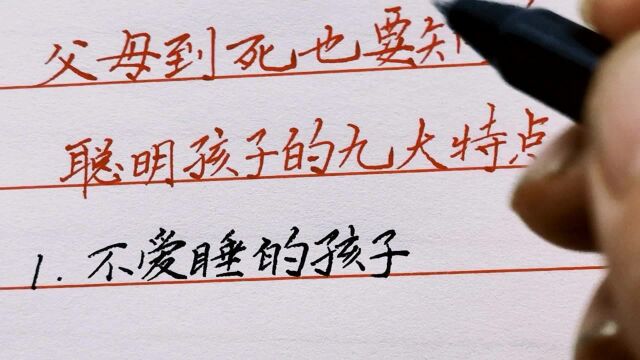 父母到死也要知
聪明孩子的九大特点
1. 不爱睡的孩子